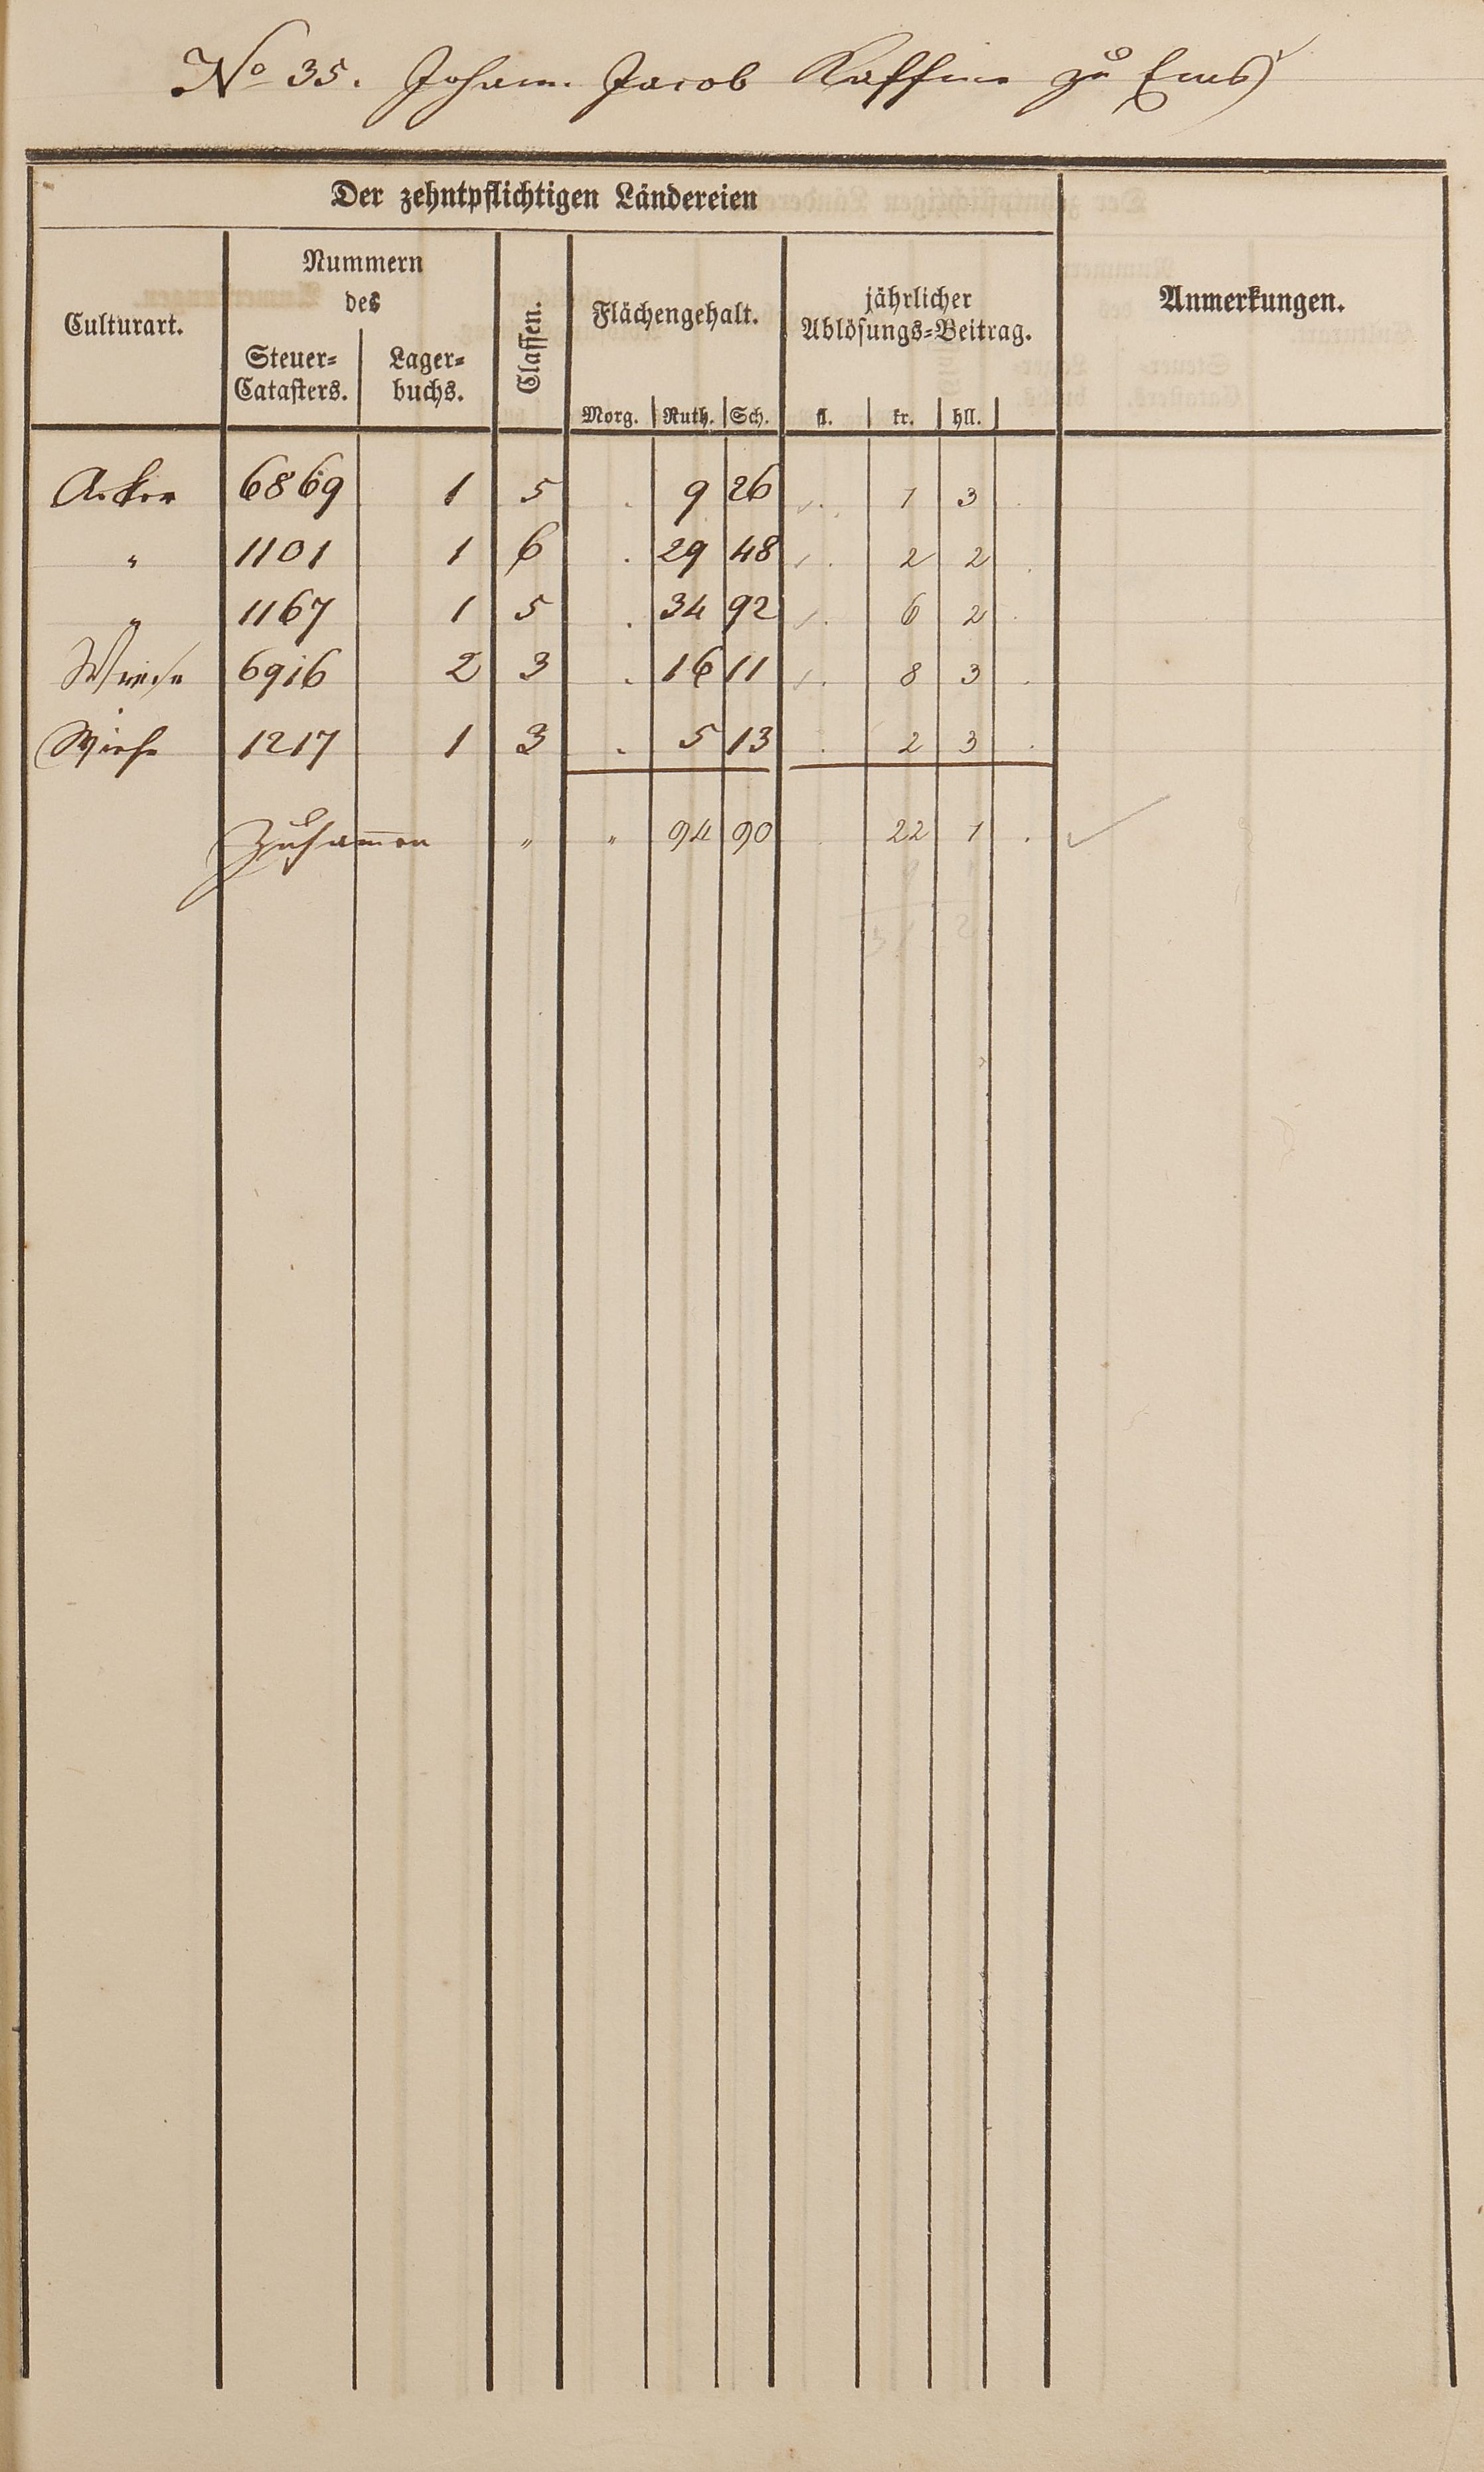 No 35. Johann Jacob Kaffine zu Ems
Der zehntpflichtigen Ländereien
Culturart. Nummern des Classen. Flächengehalt. jährlicher Ablösungs=Beitrag. Anmerkungen.
Steuer=Catasters. Lager=buchs. Morg. Ruth. Sch. fl. kr. hll.
Acker 6869 1 5 . 9 26 . 1 3 .
" 1101 1 6 . 29 48 . 2 2 .
" 1167 1 5 . 34 92 . 6 2 .
Wiese 6916 2 3 . 16 11 . 8 3 .
Wiese 1217 1 3 . 5 13 . 2 3 .
Zusammen " " 94 90 . 22 1 .